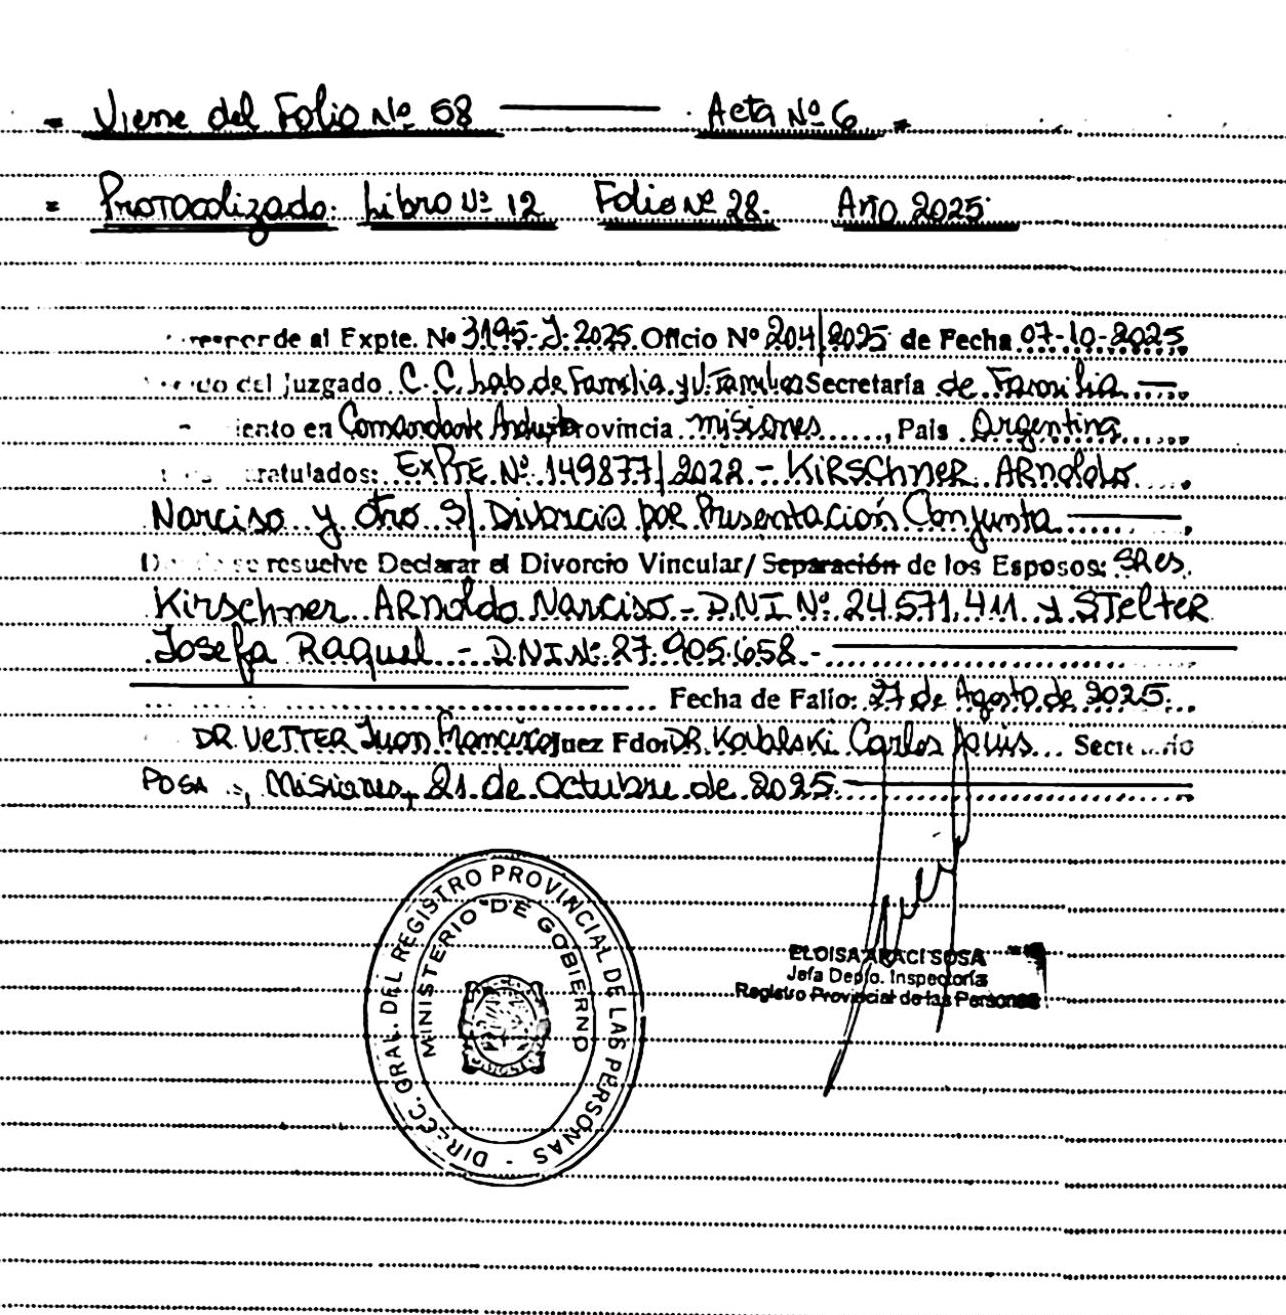 = Viene del Folio Nº 58 ——— Acta Nº 6 =
= Protocolizado: Libro Nº 12 Folio Nº 28. Año 2025.
de al Expte. Nº 3195-J-2025. Oficio Nº 204/2025 de Fecha 07-10-2025
del Juzgado C.C. Lab. de Familia y V. Familiar Secretaría de Familia —
en Comandante Provincia misiones, País Argentina
EXPTE. Nº 149877/2022 - KIRSCHNER ARNOldo
Narciso y otro S/ Divorcio por Presentación Conjunta —
se resuelve Declarar el Divorcio Vincular/ Separación de los Esposos: SRes.
Kirschner ARNOldo Narciso - D.N.I Nº 24.571.411 y STelteR
Josefa Raquel - D.N.I Nº 27.905.658.-
Fecha de Fallo: 27 de Agosto de 2025
DR. VETTER Juan Francisco Juez Fdo: DR. Kovalski Carlos
POSA, Misiones, 21 de Octubre de 2025
DIRECC. GRAL. DEL REGISTRO PROVINCIAL DE LAS PERSONAS -
MINISTERIO DE GOBIERNO
ELOISA ARACI SOSA
Jefa Depto. Inspectoría
Registro Provincial de las Personas